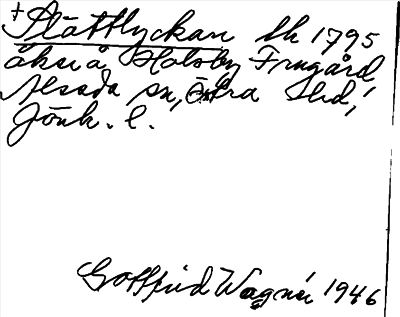 + Slättlyckan Sk 1795
åker å Holsby Frugård
Alseda sn, Östra Hd,
Jönk. l.
Gottfrid Wagnér 1946